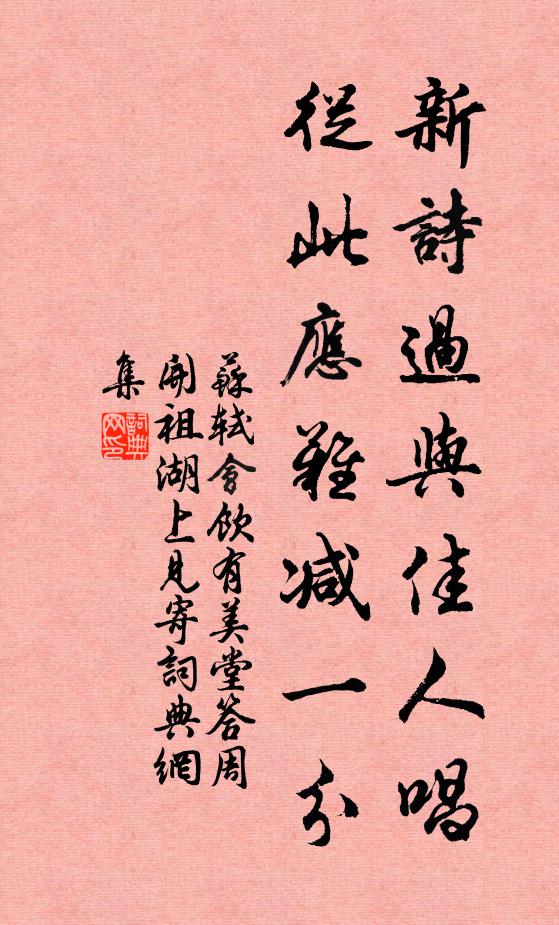 新詩過與佳人唱
從此應難減一分
蘇軾會飲有美堂答周
開祖湖上見寄詞典網
集
詞典
网印